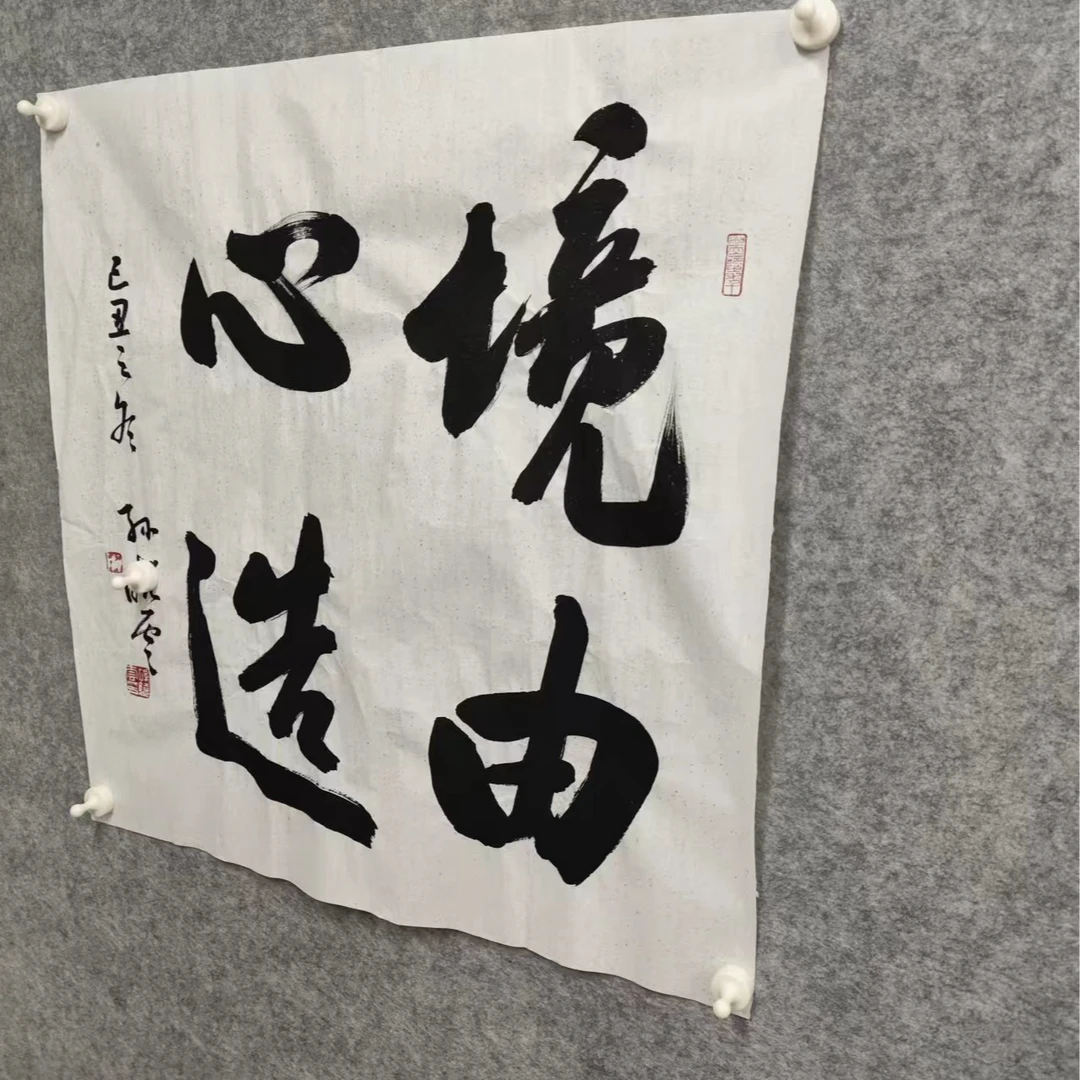 境由
心造
己丑之冬 孙云